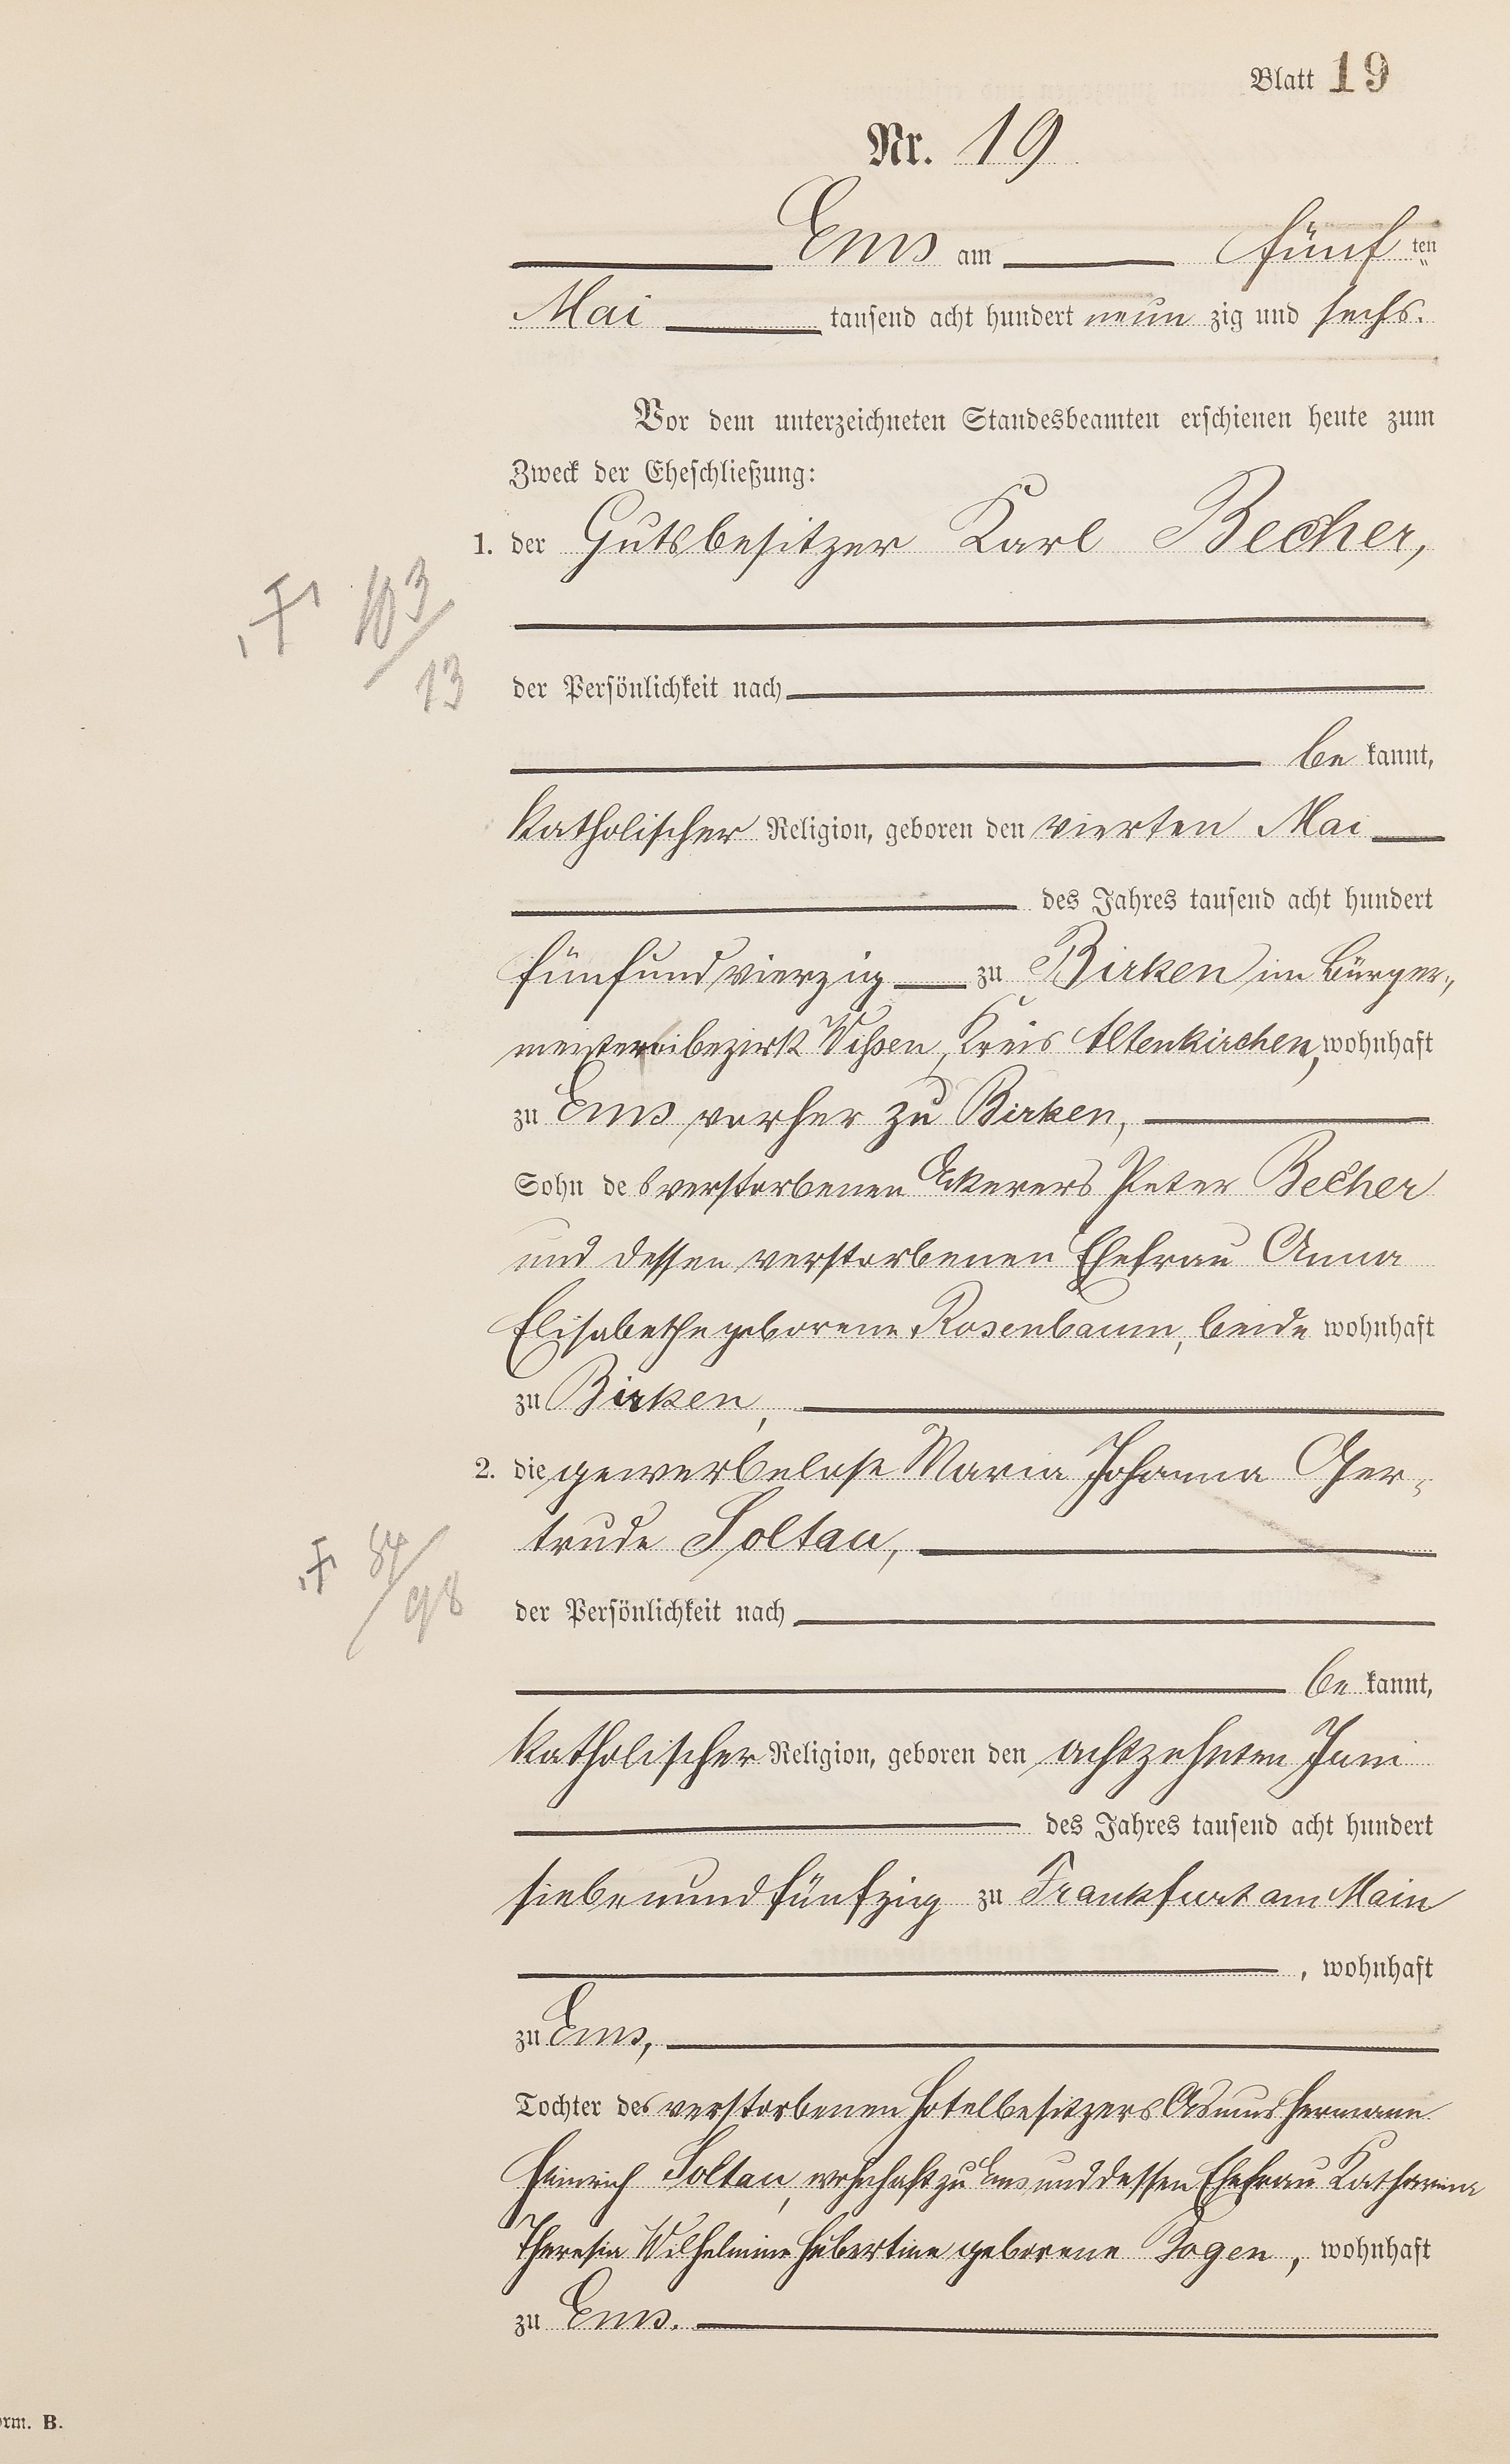 Blatt 19
Nr. 19
Ems am fünf ten
Mai tausend acht hundert neun zig und sechs.
Vor dem unterzeichneten Standesbeamten erschienen heute zum
Zweck der Eheschließung:
1. der Gutsbesitzer Karl Becher,
103
13
der Persönlichkeit nach
be kannt,
katholischer Religion, geboren den vierten Mai
des Jahres tausend acht hundert
fünfundvierzig zu Birken im Bürger-
meistereibezirk Wißen, Kreis Altenkirchen, wohnhaft
zu Ems vorher zu Birken,
Sohn des verstorbenen Ackerers Peter Becher
und dessen verstorbenen Ehefrau Anna
Elisabethe geborene Rosenbaum, beide wohnhaft
zu Birken,
2. die gewerbelose Maria Johanna Ger-
trude Soltau,
84
98
der Persönlichkeit nach
be kannt,
katholischer Religion, geboren den achtzehnten Juni
des Jahres tausend acht hundert
siebenundfünfzig zu Frankfurt am Main
, wohnhaft
zu Ems,
Tochter des verstorbenen Hotelbesitzers Asmus Hermann
Heinrich Soltau, wohnhaft zu Ems und dessen Ehefrau Katharina
Theresia Wilhelmine Hubertine geborene Bogen, wohnhaft
zu Ems.
orm. B.